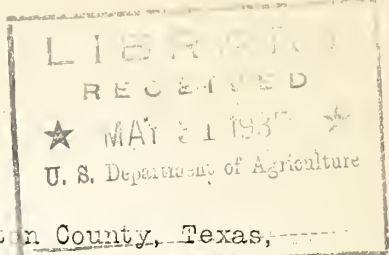 LIBRARY
RECEIVED
★ MAY 21 193 ★
U. S. Department of Agriculture
n County, Texas,